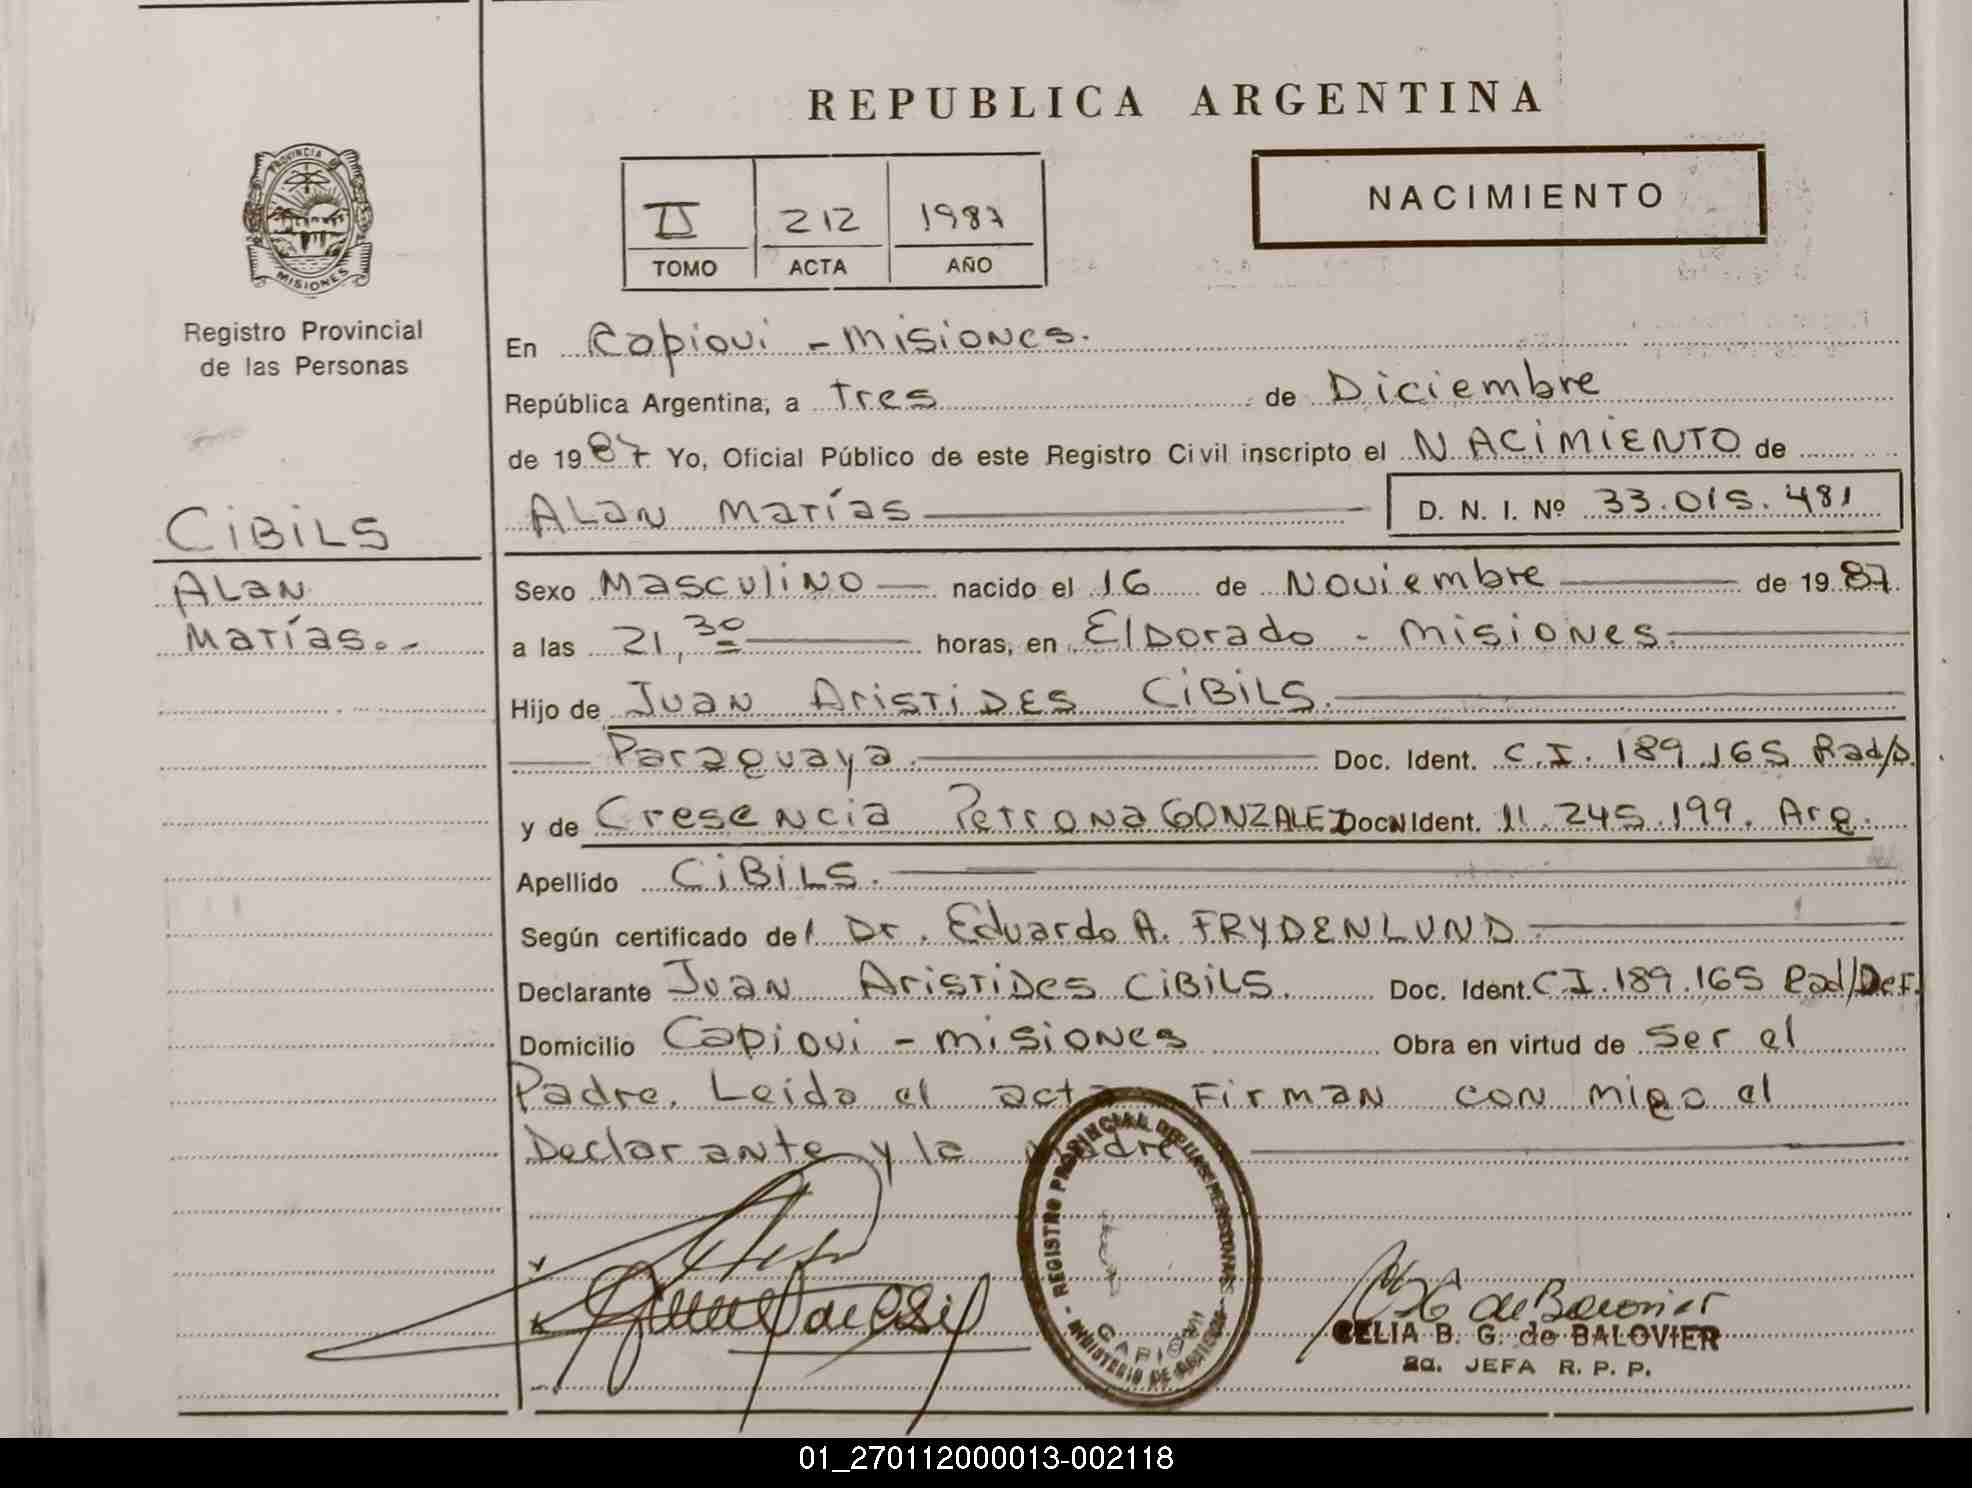 REPUBLICA ARGENTINA
PROVINCIA DE MISIONES
II 212 1987
TOMO ACTA AÑO
NACIMIENTO
Registro Provincial
de las Personas
CIBILS
ALAN
Matías.-
En Capiovi - Misiones.
República Argentina, a tres de Diciembre
de 1987 Yo, Oficial Público de este Registro Civil inscripto el NACIMIENTO de
ALAN Matías D. N. I. Nº 33.015.481
Sexo Masculino nacido el 16 de Noviembre de 1987.
a las 21,30 horas, en ElDorado - Misiones.
Hijo de Juan Aristides CIBILS.
Paraguaya. Doc. Ident. C.I. 189.165 Rad/D.
y de Cresencia Petrona GONZALEZ Doc. Ident. 11.245.199. Arg.
Apellido CIBILS.
Según certificado del Dr. Eduardo A. FRYDENLUND
Declarante Juan Aristides CIBILS. Doc. Ident. C.I. 189.165 Rad/Def.
Domicilio Capiovi - Misiones Obra en virtud de ser el
Padre. Leida el acta Firman con migo el
Declarante y la Madre
REGISTRO PROVINCIAL DE LAS PERSONAS
CAPIOVI
MINISTERIO DE
CELIA B. G. de BALOVIER
2a. JEFA R. P. P.
01_270112000013-002118